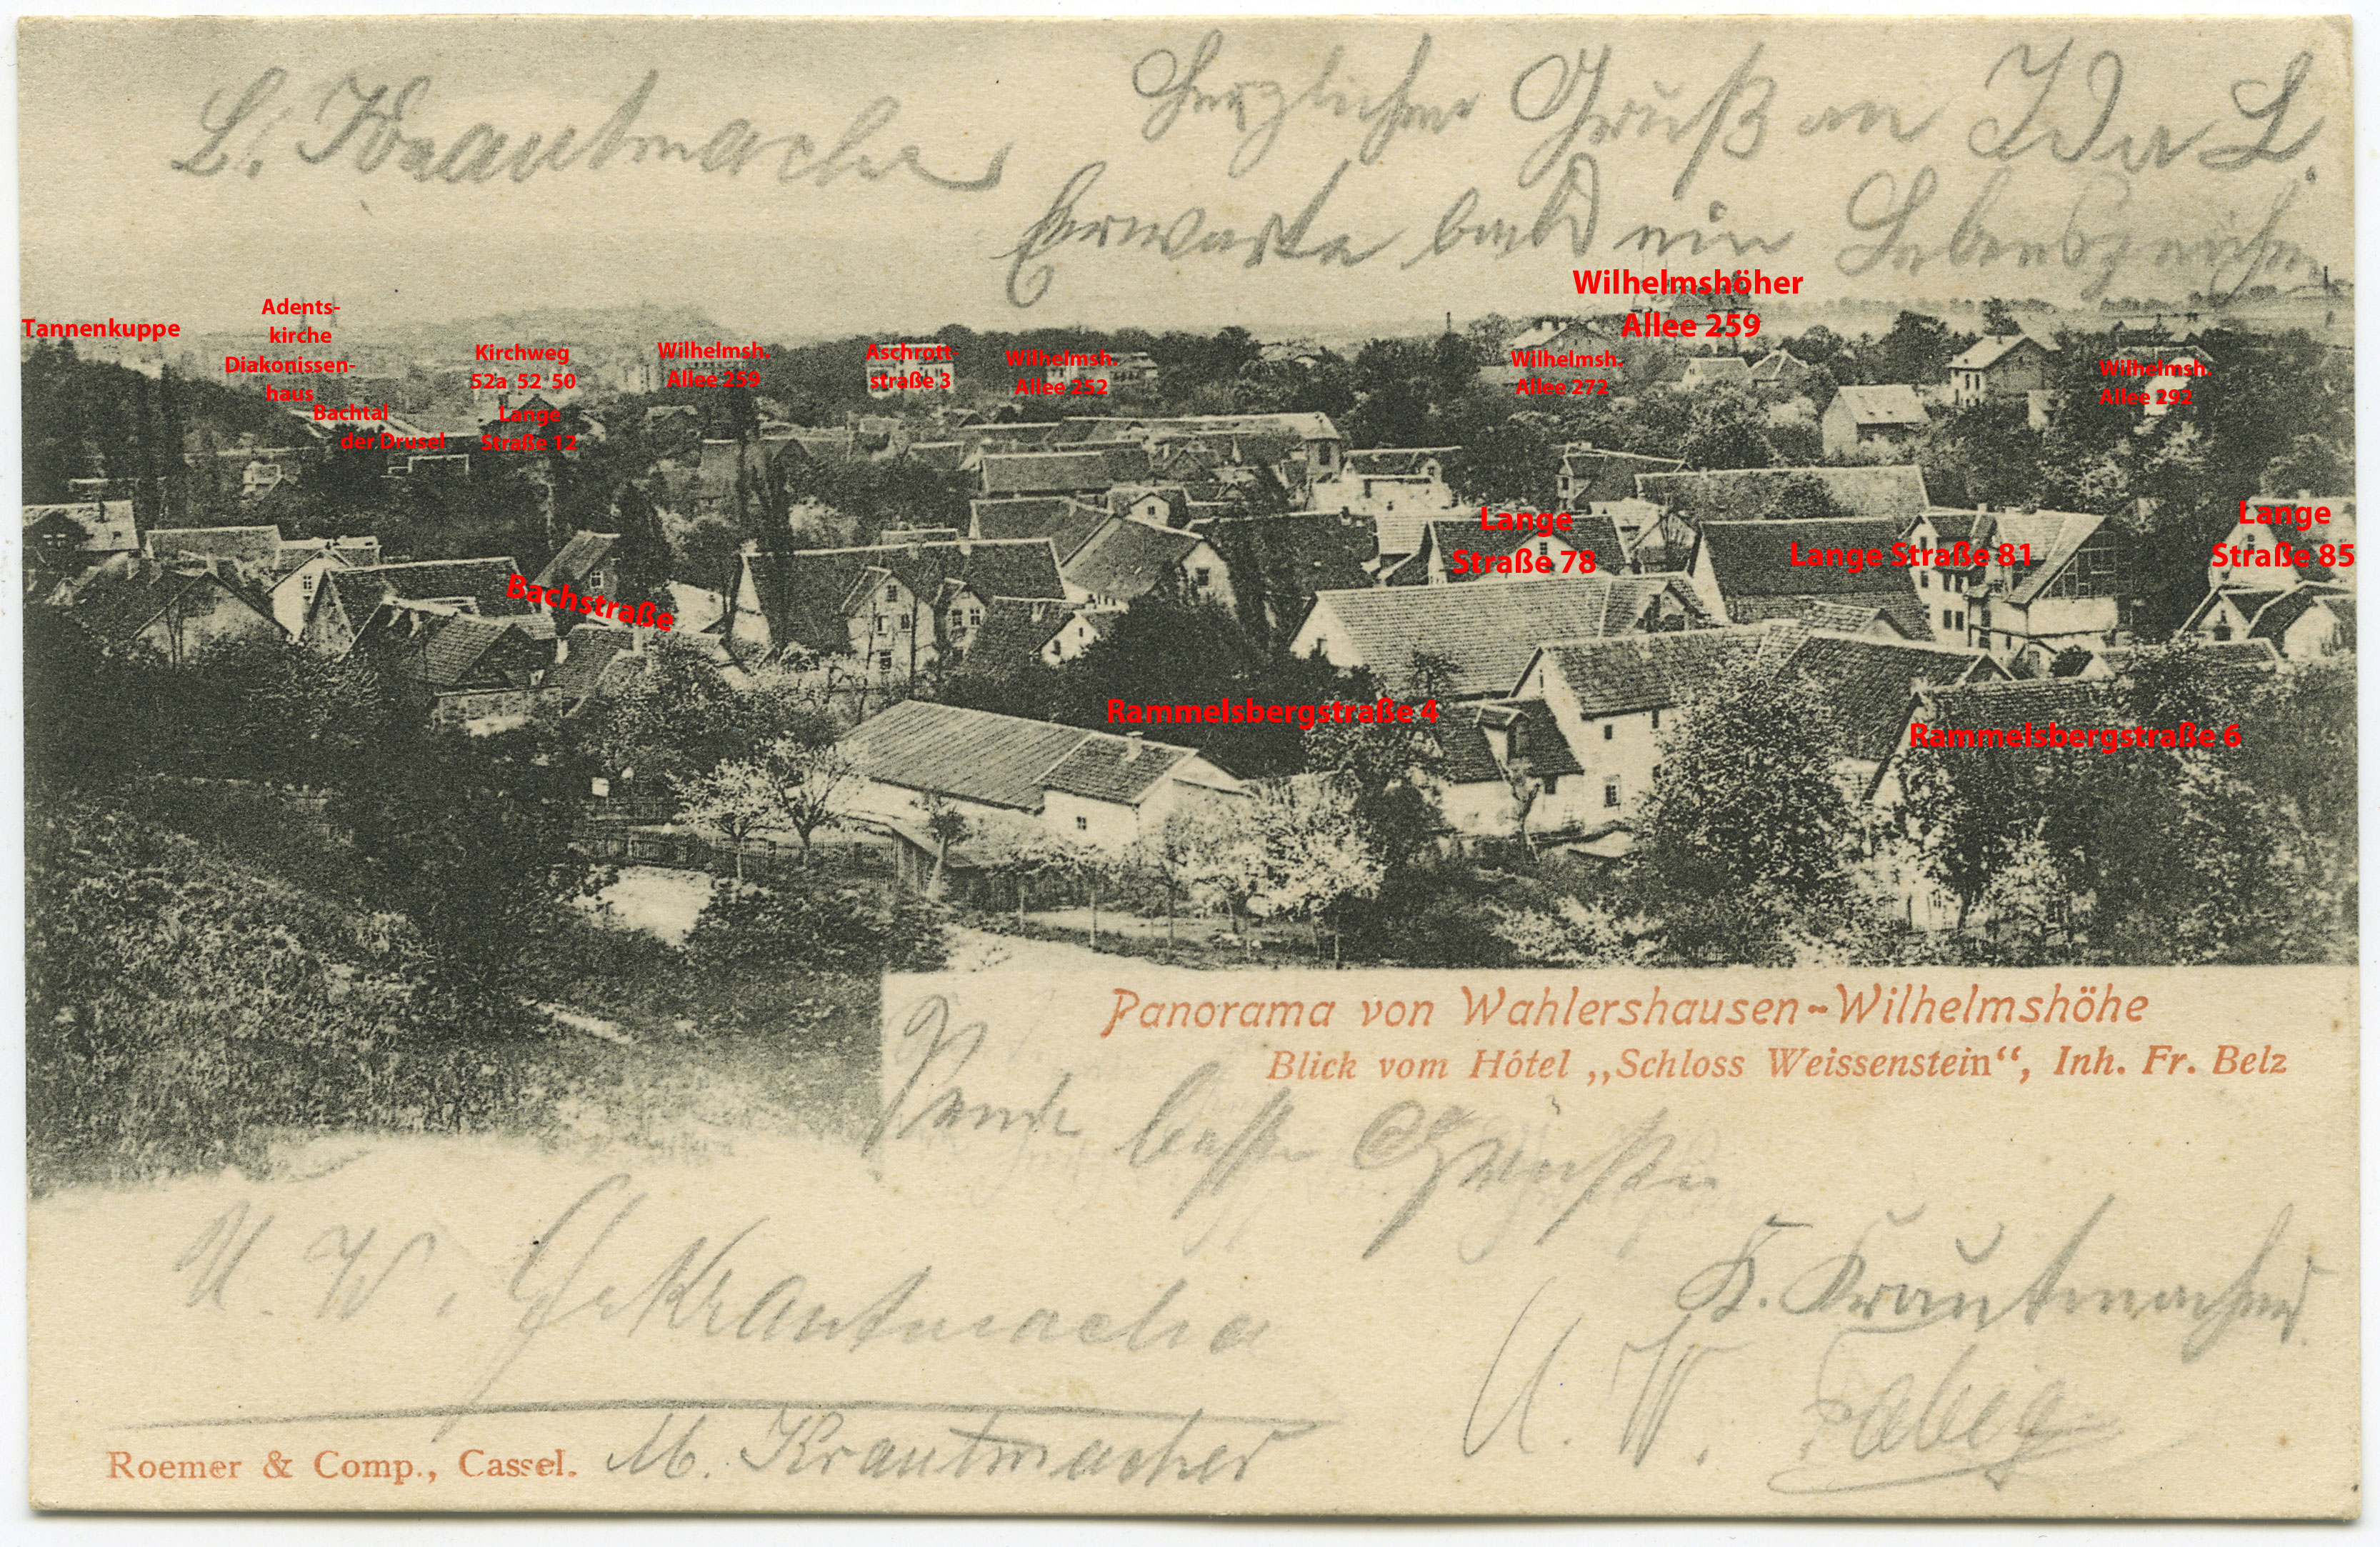 L. Krautmacher
Herzlichen Gruß an Ida L.
Erwarte bald ein Lebenszeichen
Wilhelmshöher
Allee 259
Tannenkuppe
Adents-
kirche
Diakonissen-
haus
Bachtal
der Drusel
Kirchweg
52a 52 50
Lange
Straße 12
Wilhelmsh.
Allee 259
Aschrott-
straße 3
Wilhelmsh.
Allee 252
Wilhelmsh.
Allee 272
Wilhelmsh.
Allee 292
Lange
Straße 78
Lange Straße 81
Lange
Straße 85
Bachstraße
Rammelsbergstraße 4
Rammelsbergstraße 6
Panorama von Wahlershausen-Wilhelmshöhe
Blick vom Hôtel „Schloss Weissenstein“, Inh. Fr. Belz
Sende beste Grüße
K. Krautmacher
U. W. Krautmacher
U. W.
M. Krautmacher
Roemer & Comp., Cassel.